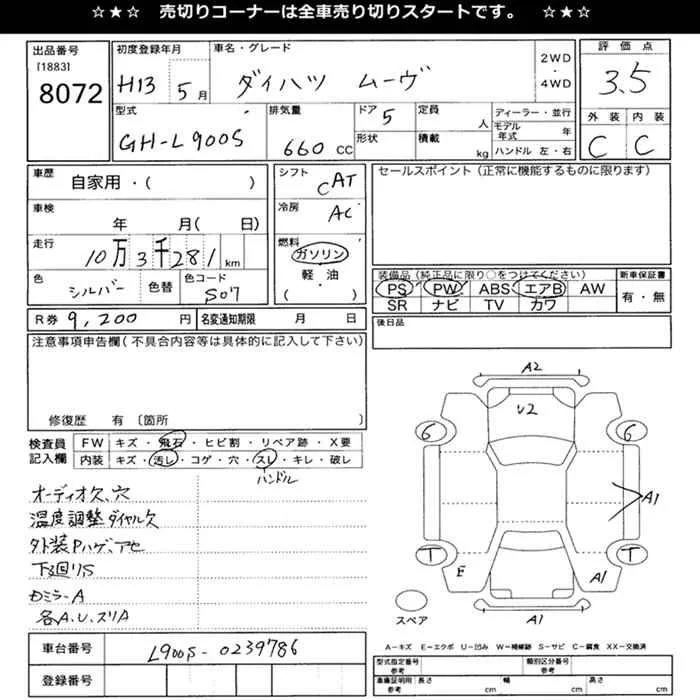 ☆★☆ 売切りコーナーは全車売り切りスタートです。 ☆★☆
出品番号
[1883]
8072
初度登録年月
H13 5月
車名・グレード
ダイハツ ムーヴ
2WD
・
4WD
評価点
3.5
型式
GH-L900S
排気量
660 CC
ドア 5
形状
定員
人
積載
kg
ディーラー・並行
モデル年式 年
ハンドル 左・右
外装 内装
C C
車歴
自家用・( )
車検
年 月( 日)
走行
10万3千281km
色
シルバー
色替
色コード
S07
シフト
CAT
冷房
AC
燃料
ガソリン
軽・油
( )
セールスポイント(正常に機能するものに限ります)
装備品(純正品に限り○をつけてください)
PS PW ABS エアB AW
SR ナビ TV カワ
新車保証書
有・無
R券 9,200 円
名変通知期限 月 日
後日品
注意事項申告欄(不具合内容等は具体的に記入して下さい)
修復歴 有〔箇所 〕
検査員記入欄
FW キズ・飛石・ヒビ割・リペア跡・X要
内装 キズ・汚レ・コゲ・穴・スレ・キレ・破レ
ハンドル
オーディオ欠、穴
温度調整ダイヤル欠
外装Pハゲ、アセ
下回リS
カミラーA
各A.U.スリA
A2
U2
6 6
A1
T T
E A1
A1
スペア
A−キズ E−エクボ U−凹み W−補修跡 S−サビ C−腐食 XX−交換済
車台番号
L900S-0239786
登録番号
型式指定番号
参考
類別区分番号
参考
車庫証明用
参考
長さ cm
幅 cm
高さ cm